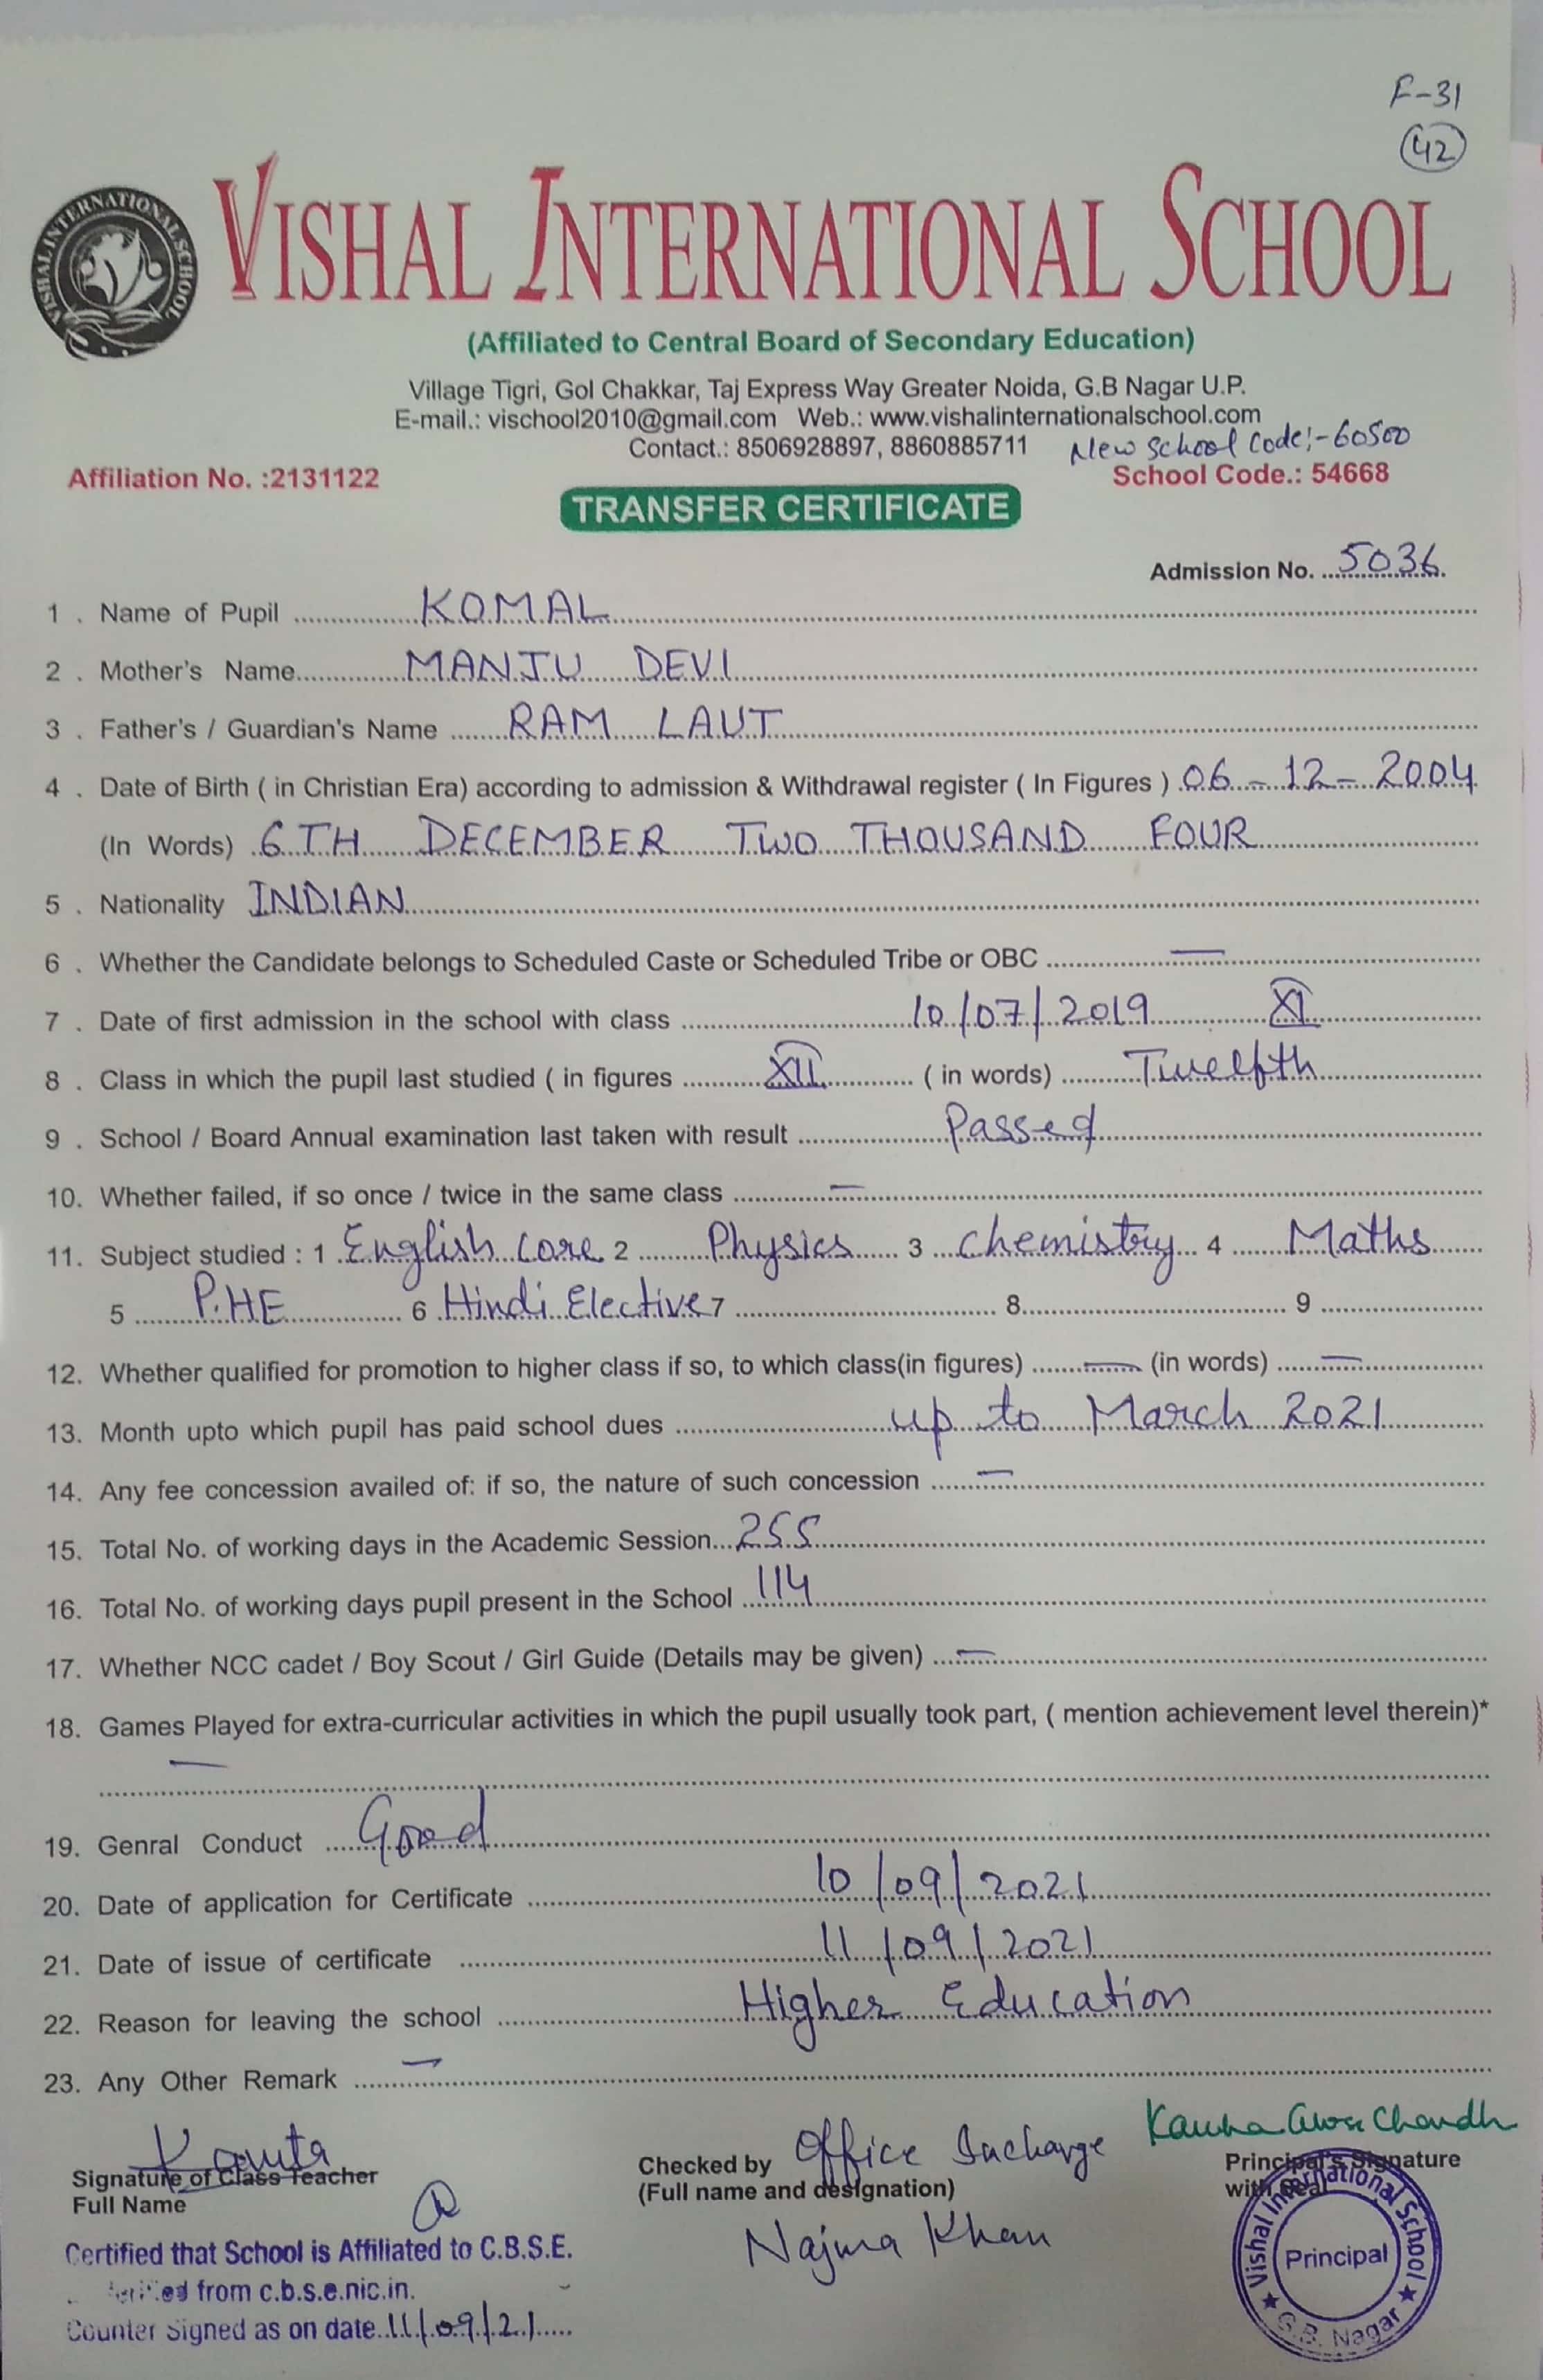 F-31
42
VISHAL INTERNATIONAL SCHOOL
VISHAL INTERNATIONAL SCHOOL
(Affiliated to Central Board of Secondary Education)
Village Tigri, Gol Chakkar, Taj Express Way Greater Noida, G.B Nagar U.P.
E-mail.: vischool2010@gmail.com Web.: www.vishalinternationalschool.com
Contact.: 8506928897, 8860885711 New School Code:-60500
Affiliation No. :2131122 School Code.: 54668
TRANSFER CERTIFICATE
Admission No. 5036
1 . Name of Pupil KOMAL
2 . Mother's Name MANJU DEVI
3 . Father's / Guardian's Name RAM LAUT
4 . Date of Birth ( in Christian Era) according to admission & Withdrawal register ( In Figures ) 06-12-2004
(In Words) 6TH DECEMBER TWO THOUSAND FOUR
5 . Nationality INDIAN
6 . Whether the Candidate belongs to Scheduled Caste or Scheduled Tribe or OBC —
7 . Date of first admission in the school with class 10/07/2019 XI
8 . Class in which the pupil last studied ( in figures XII ( in words) Twelfth
9 . School / Board Annual examination last taken with result Passed
10. Whether failed, if so once / twice in the same class —
11. Subject studied : 1 English Core 2 Physics 3 Chemistry 4 Maths
5 P.HE 6 Hindi Elective 7 8 9
12. Whether qualified for promotion to higher class if so, to which class(in figures) — (in words) —
13. Month upto which pupil has paid school dues up to March 2021
14. Any fee concession availed of: if so, the nature of such concession —
15. Total No. of working days in the Academic Session 255
16. Total No. of working days pupil present in the School 114
17. Whether NCC cadet / Boy Scout / Girl Guide (Details may be given) —
18. Games Played for extra-curricular activities in which the pupil usually took part, ( mention achievement level therein)*
—
19. Genral Conduct Good
20. Date of application for Certificate 10/09/2021
21. Date of issue of certificate 11/09/2021
22. Reason for leaving the school Higher Education
23. Any Other Remark —
Kavita
Signature of Class Teacher
Full Name
Checked by Office Incharge
(Full name and designation)
Najma Khan
Principal's Signature
with Seal
Vishal International School
Principal
G.B. Nagar
Certified that School is Affiliated to C.B.S.E.
from c.b.s.e.nic.in.
Counter Signed as on date 11/09/21